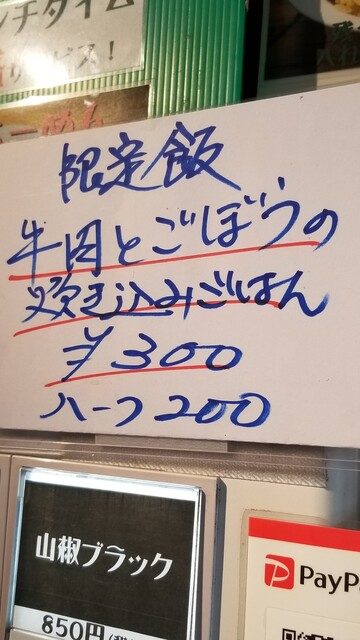 ンチタイム
サービス！
限定飯
牛肉とごぼうの
炊き込みごはん
¥300
ハーフ 200
山椒ブラック
850円
PayP